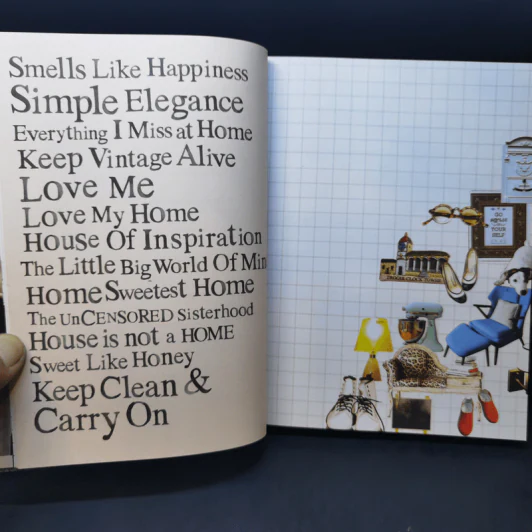 Smells Like Happiness
Simple Elegance
Everything I Miss at Home
Keep Vintage Alive
Love Me
Love My Home
House Of Inspiration
The Little Big World Of Min
Home Sweetest Home
The UnCENSORED Sisterhood
House is not a HOME
Sweet Like Honey
Keep Clean &
Carry On
GO
YOUR
SELF